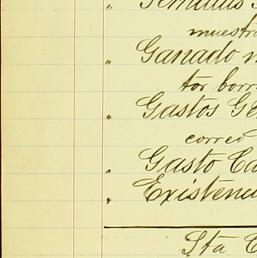 muestra
" Ganado
tor borr
" Gastos Ge
correo
" Gasto Ca
" Existenci
Sta C